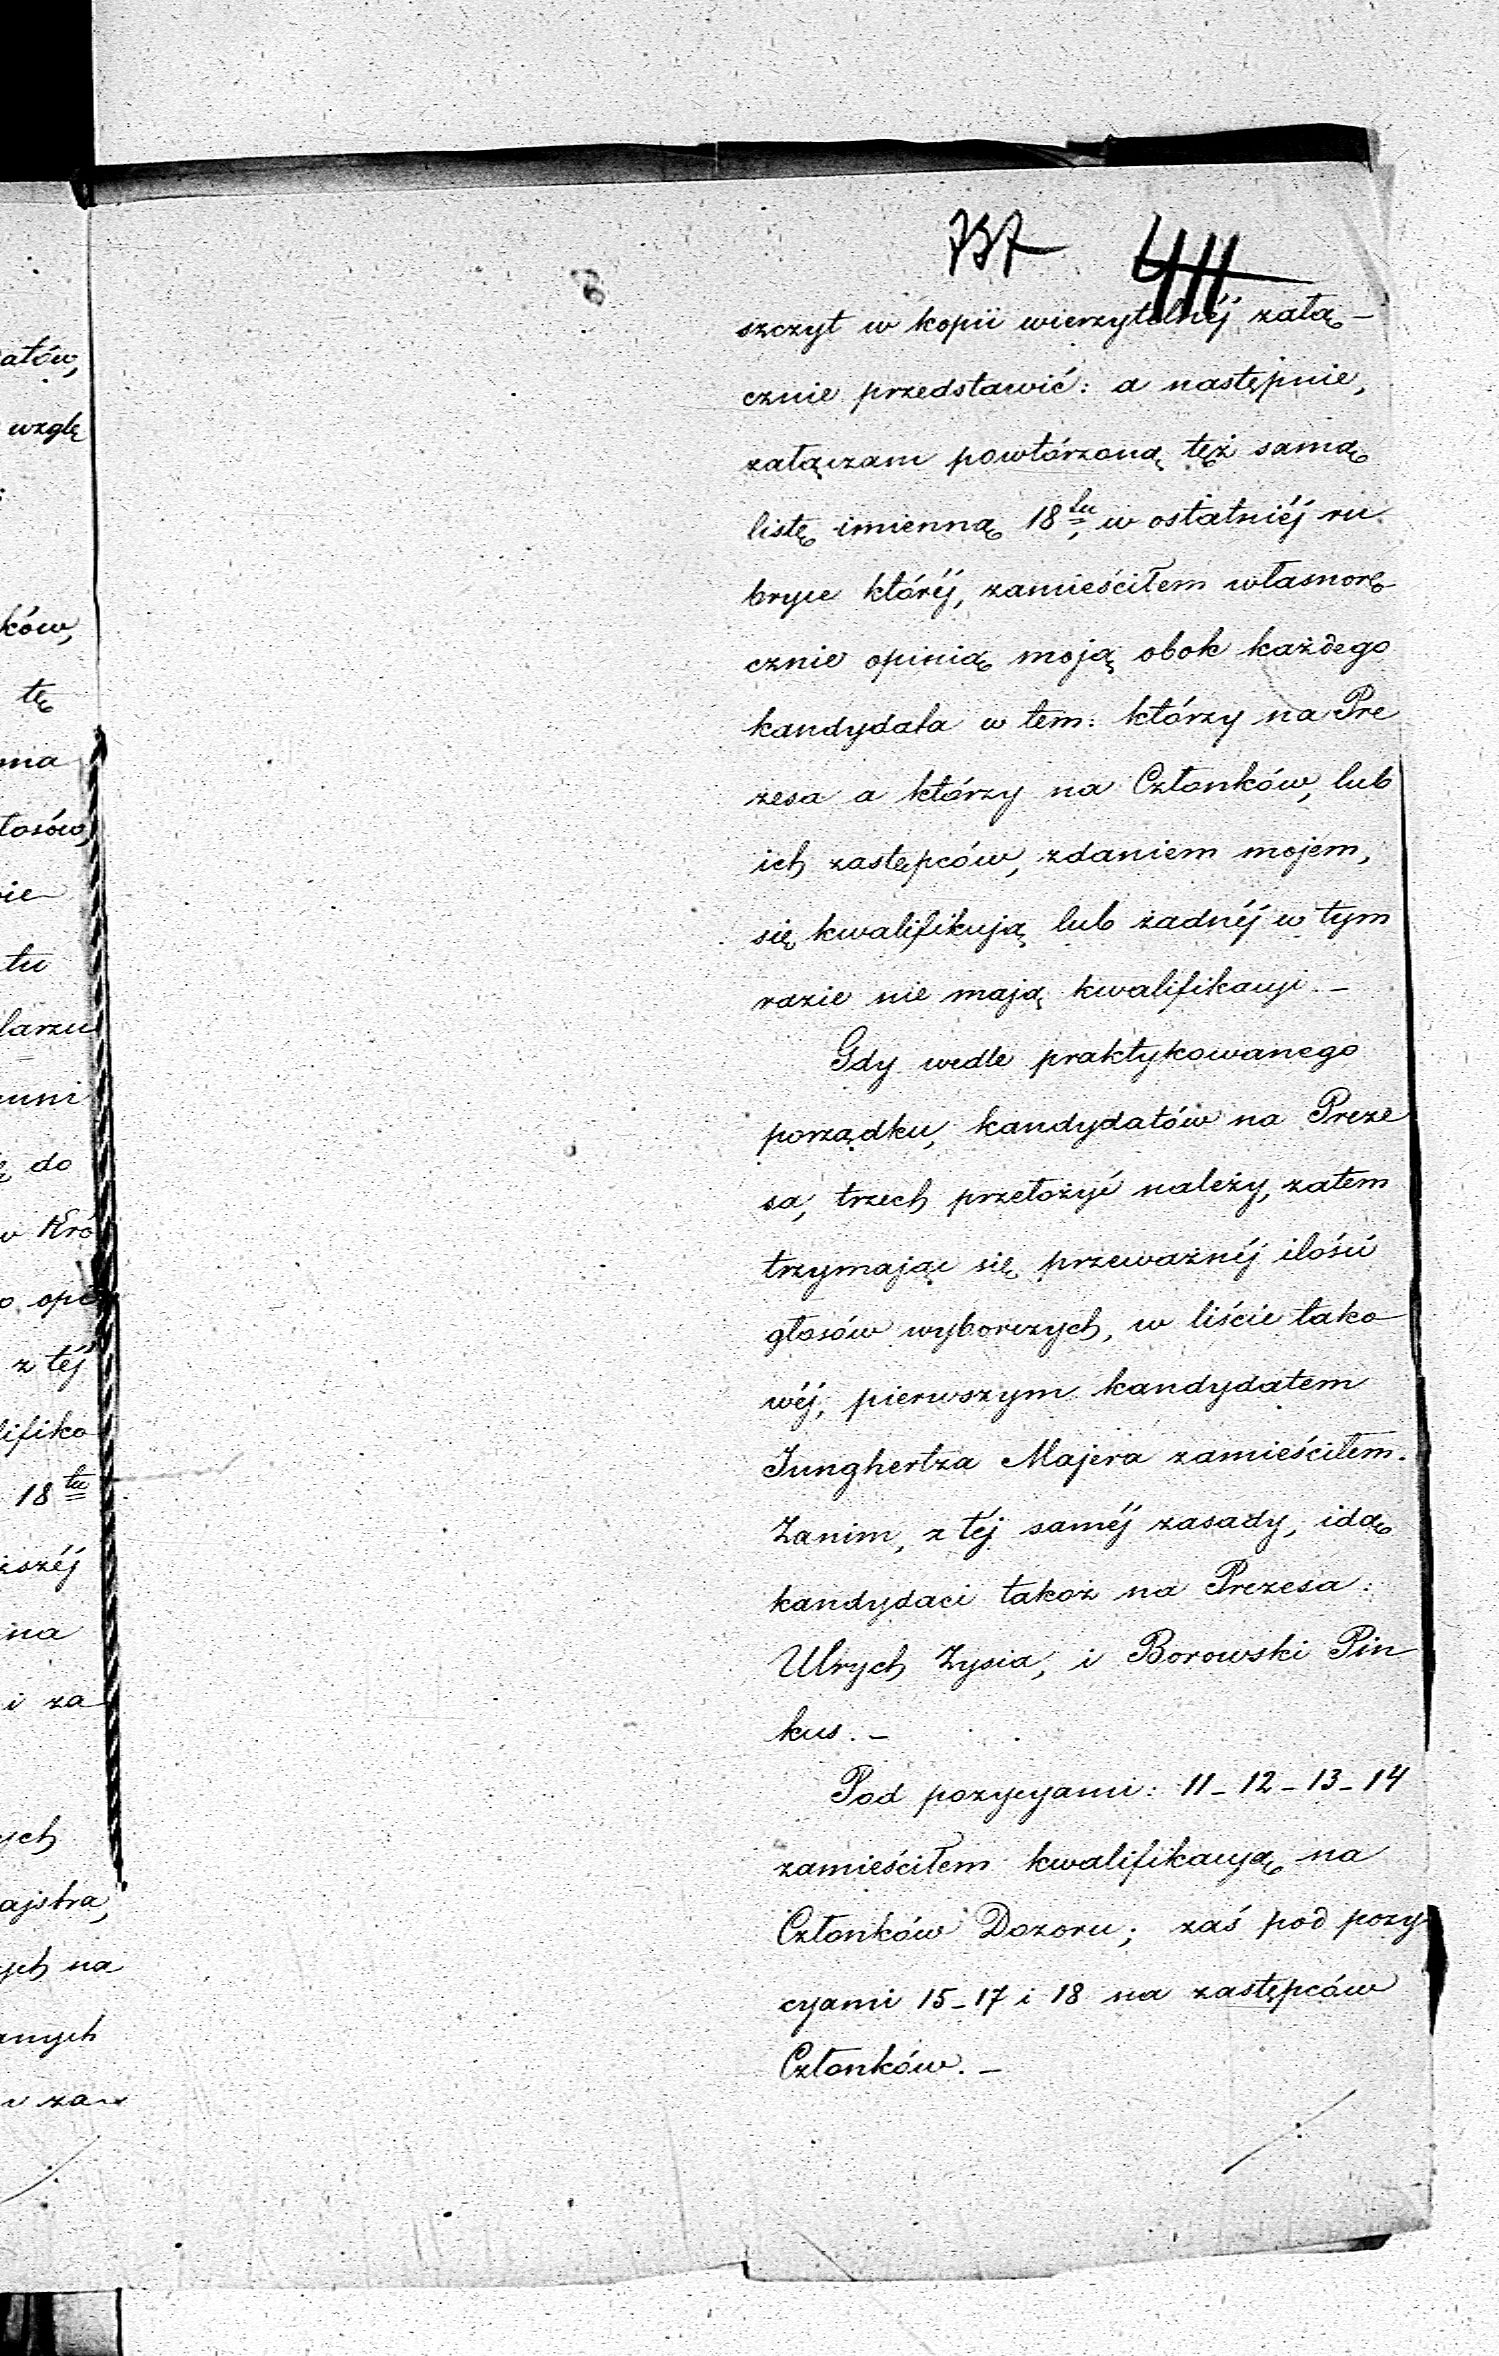 737 411
szczyt w kopii wierzytelnéj załą-
cznie przedstawić: a następnie,
załączam powtórzoną też samą
listę imienną 18tu, w ostatniéj ru
bryce któréj, zamieściłem własnorę
cznie opinią moją obok każdego
kandydata w tem: którzy na Pre
zesa a którzy na Członków, lub
ich zastępców, zdaniem mojem,
się kwalifikują lub żadnéj w tym
razie nie mają kwalifikacyi. -
Gdy wedle praktykowanego
porządku, kandydatów na Preze
sa, trzech przełożyć należy, zatem
trzymając się przeważnéj ilości
głosów wyborczych, w liście tako
wéj, pierwszym kandydatem
Junghertza Majera zamieściłem.
Zanim, z téj saméj zasady, idą
kandydaci takoż na Prezesa:
Ulrych Zysia, i Borowski Pin
kus. -
Pod pozycyami: 11-12-13-14
zamieściłem kwalifikacyą na
Członków Dozoru; zaś pod pozy
cyami 15-17 i 18 na zastępców
Członków. -
atów,
wzglę
ków,
tę
ma
łosów,
nie
tu
larzu
uni
do
w Kró
opi
z téj
lifika
18tu
na
i za
ych
ajstra,
ych na
anych
za